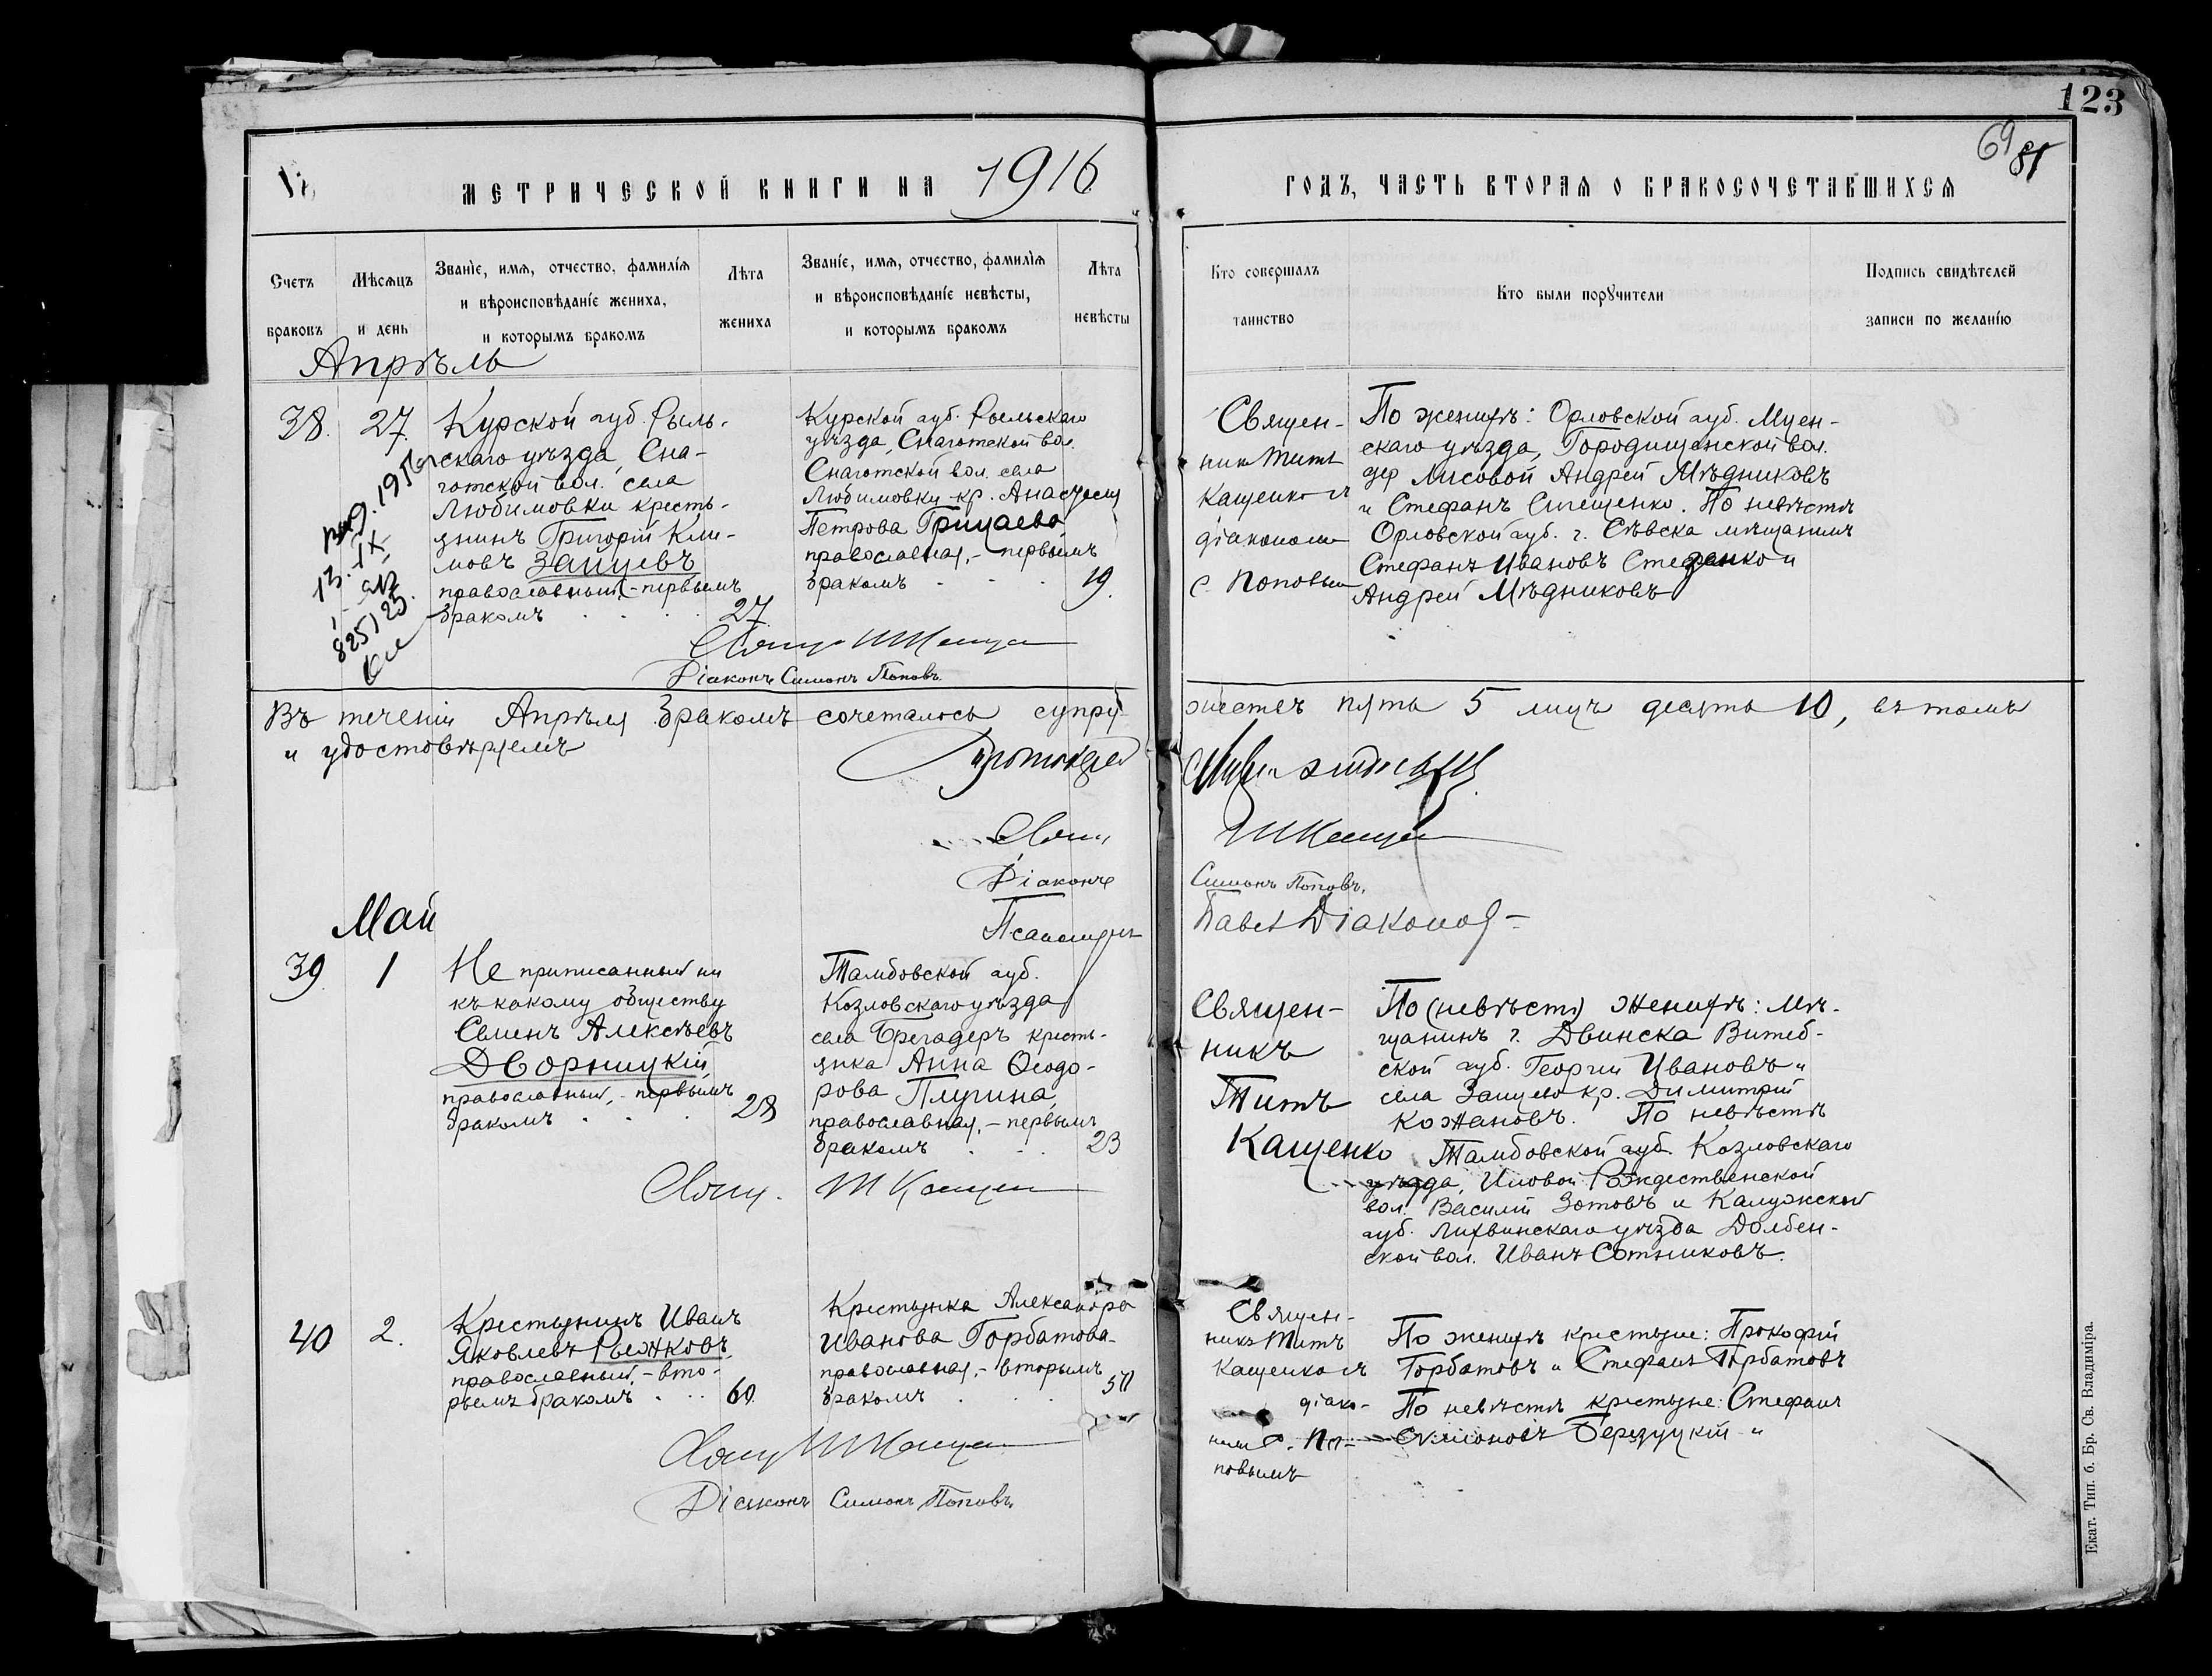 123
69 81
МЕТРИЧЕСКОЙ КНИГИ НА 1916
ГОДЪ, ЧАСТЬ ВТОРАЯ О БРАКОСОЧЕТАВШИХСЯ
Счетъ
браковъ
Мѣсяцъ
и день
Званіе, имя, отчество, фамилія
и вѣроисповѣданіе жениха,
и которымъ бракомъ
Лѣта
жениха
Званіе, имя, отчество, фамилія
и вѣроисповѣданіе невѣсты,
и которымъ бракомъ
Лѣта
невѣсты
Кто совершалъ
таинство
Кто были поручители
Подпись свидѣтелей
записи по желанію
Апрѣль
38.
27.
Курской губ. Рыль-
скаго уѣзда, Сна-
готской вол. села
Любимовки кресть-
янинъ Григорій Кли-
мовъ Зайцевъ
православный, - первымъ
бракомъ
27.
Курской губ. Рыльскаго
уѣзда, Снаготской вол.
Снаготской вол. села
Любимовки кр. Анастасія
Петрова Грицаева
православная, - первымъ
бракомъ
19.
13. IX
825/25
Діаконъ Симонъ Поповъ.
Священ-
никъ Титъ
Кащенко съ
діакономъ
С. Поповымъ
По женихѣ: Орловской губ. Мцен-
скаго уѣзда, Городищенской вол.
дер Лисовой Андрей Мѣдниковъ
и Стефанъ Стещенко. По невѣстѣ
Орловской губ. г. Сѣвска мѣщанинъ
Стефанъ Ивановъ и
Андрей Мѣдниковъ
Въ теченіи Апрѣля бракомъ сочеталось супру-
жествъ пять 5 лицъ десять 10, въ томъ
и удостовѣряемъ
Протоіерей
Свящ.
Т Кащен
Діаконъ
Симонъ Поповъ.
Псаломщикъ
Павел Діаконов
Май
39.
1
Не приписанный ни
къ какому обществу
Семенъ Алексѣевъ
Дворницкій
православный, - первымъ
бракомъ
28
Тамбовской губ.
Козловскаго уѣзда
села Брегадеръ кресть-
янка Анна Ѳеодо-
рова Плугина
православная, - первымъ
бракомъ
23
Свящ. Т Кащен
Священ-
никъ
Титъ
Кащенко
По (невѣстѣ) женихѣ: Мѣ-
щанинъ г. Двинска Витеб-
ской губ. Георгій Ивановъ и
села Зайцево кр. Димитрій
Кожановъ. По невѣстѣ
Тамбовской губ. Козловскаго
уѣзда, Иловой Рождественской
вол. Василій Зотовъ и Калужской
губ. Лихвинскаго уѣзда Долбен-
ской вол. Иванъ Сотниковъ.
40
2.
Крестьянинъ Иванъ
Яковлевъ Рыжковъ
православный, - вто-
рымъ бракомъ
60
Крестьянка Александра
Иванова Горбатова
православная, - вторымъ
бракомъ
Свящ Т Кащен
Діаконъ Симонъ Поповъ.
Священ-
никъ Титъ
Кащенко съ
діако-
номъ С. По-
повымъ
По женихѣ крестьяне: Прокофій
Горбатовъ и Стефанъ Горбатовъ
По невѣстѣ крестьяне: Стефанъ
Березуцкій и
Екат. Тип. б. Бр. Св. Владиміра.